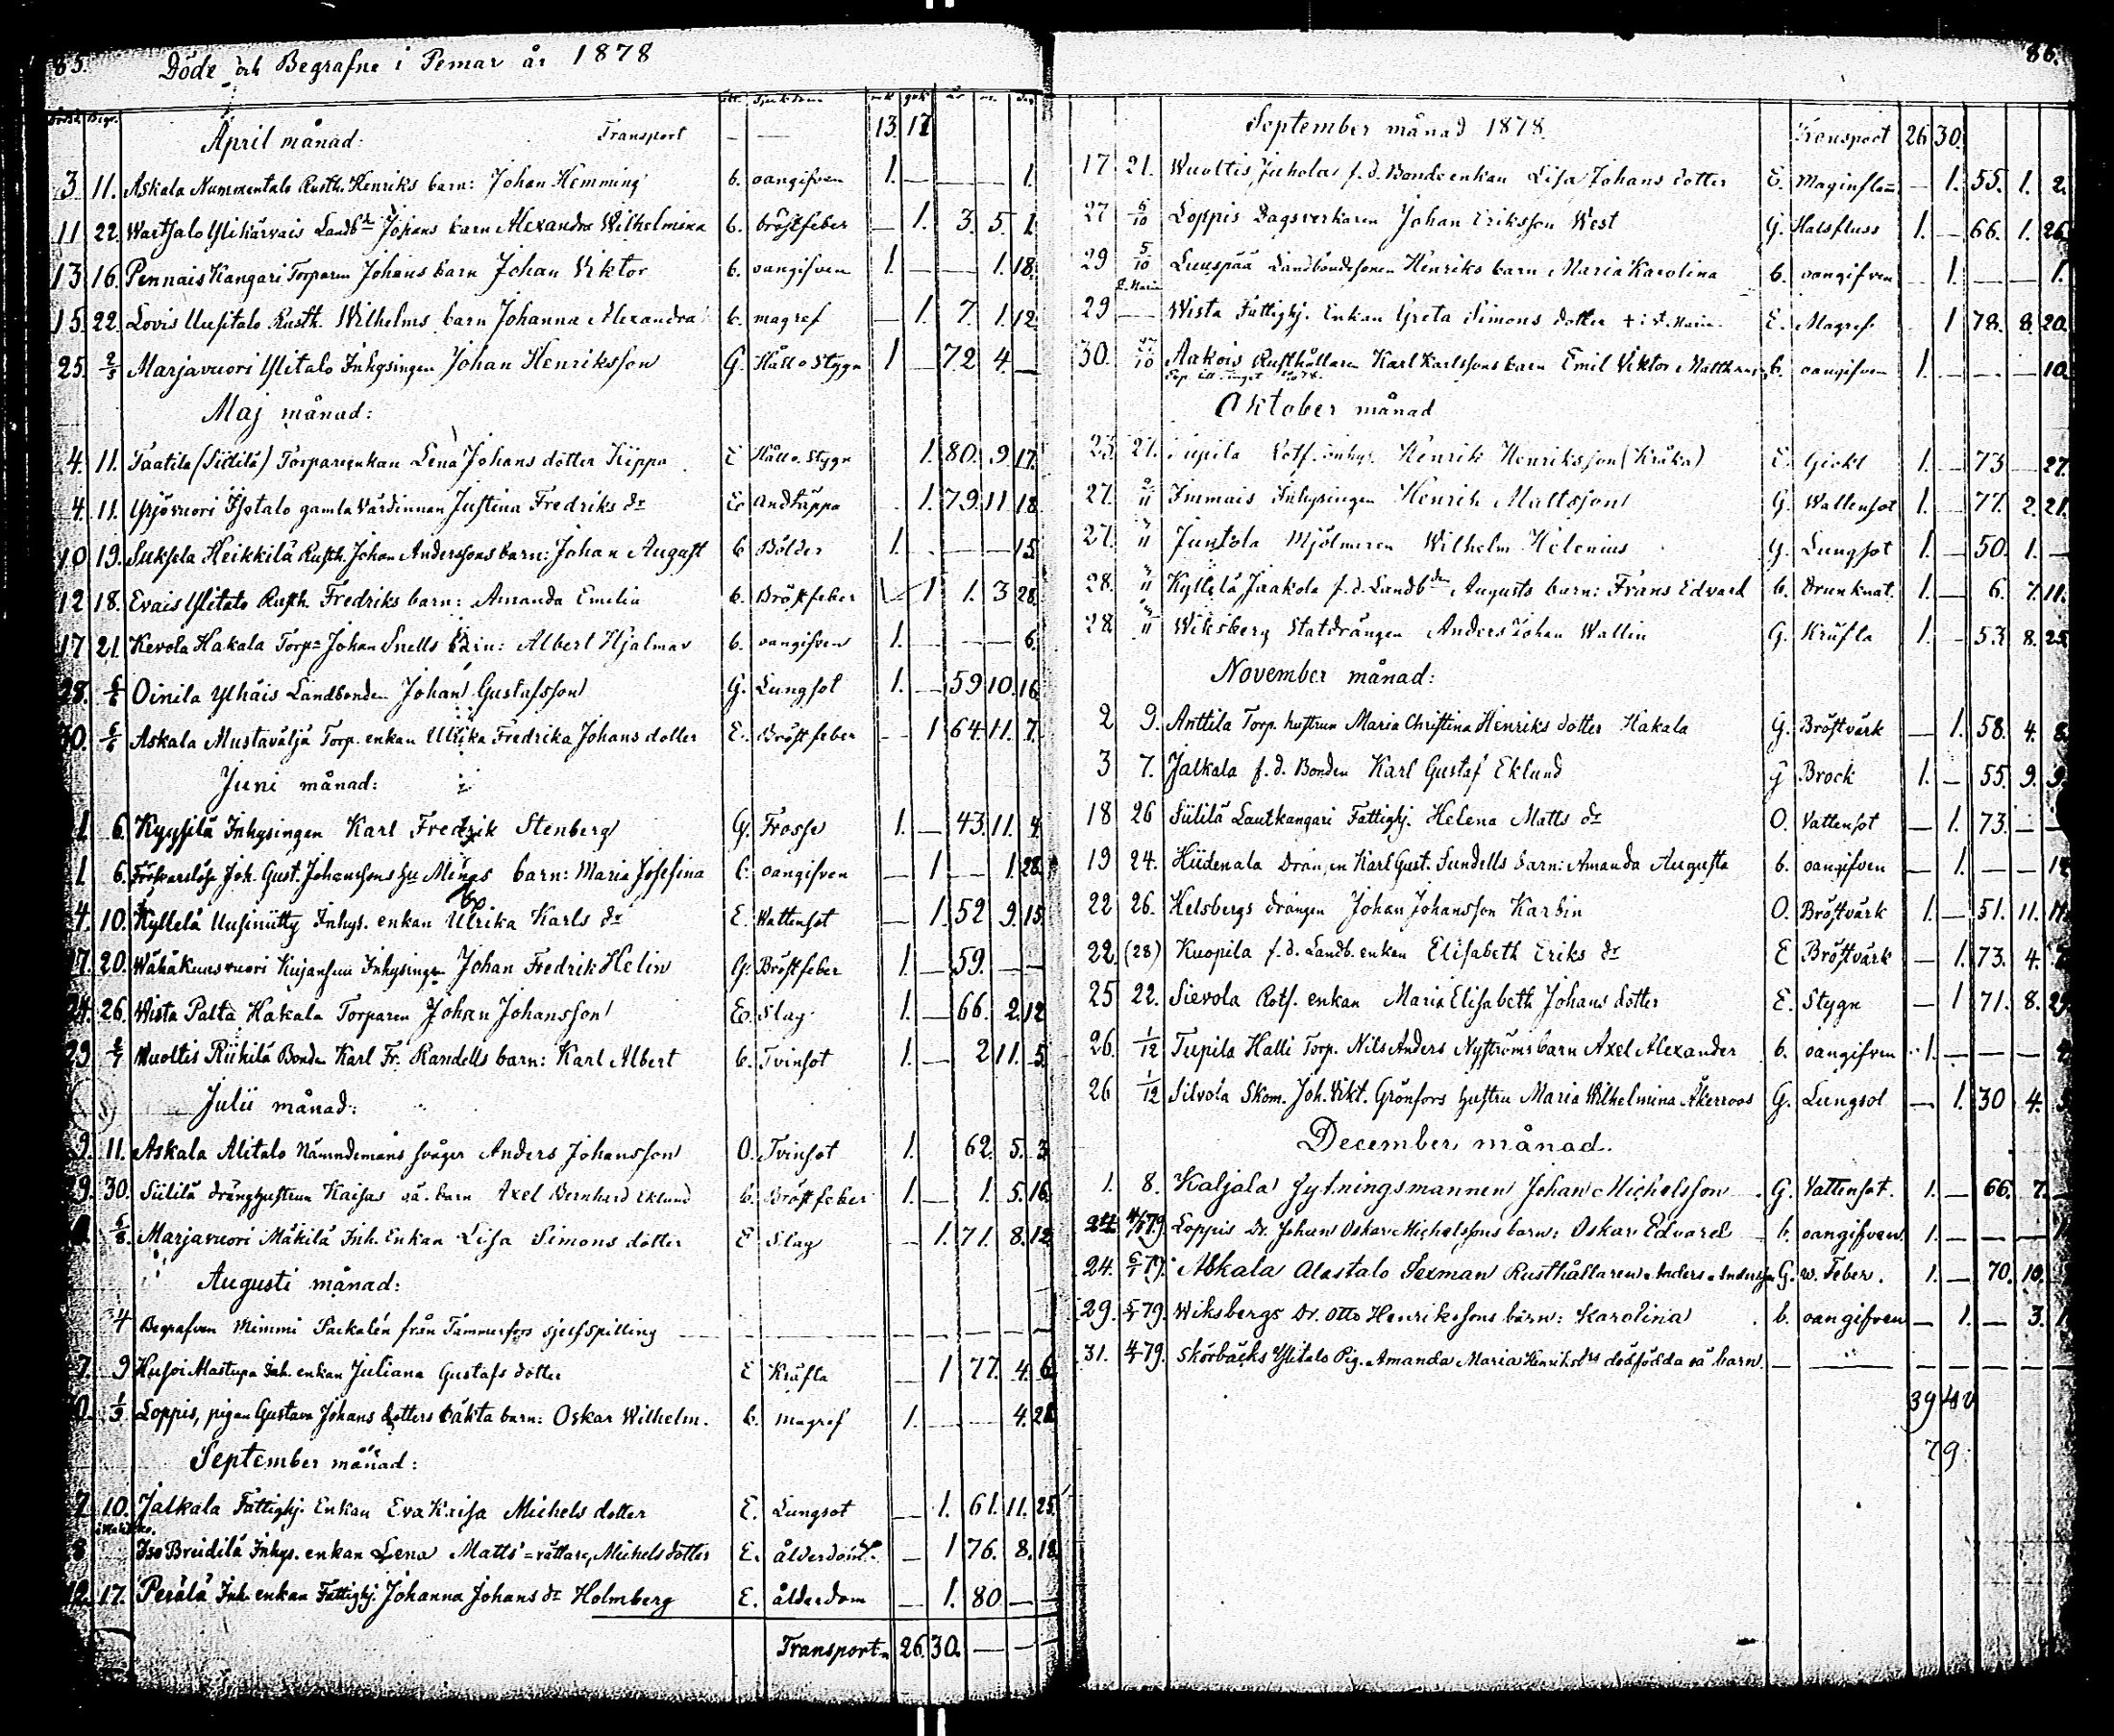 85. Döde och Begrafne i Pemar år 1878
April månad: Transport — — 13. 17
3 11. Askala Nummentalo Rusth. Henriks barn: Johan Hemming b. oangifven 1. — — — 1.
11 22. Wartsalo Ylikärvais Landbd Johans barn Alexandra Wilhelmina b. bröstfeber — 1. 3. 5. 1.
13 16. Pennais Kangari Torparen Johans barn Johan Viktor b. oangifven 1. — — 1. 18.
15. 22. Lovis Uusitalo Rusth. Wilhelms barn Johanna Alexandra b. magref — 1. 7. 1. 12.
25. 2/5 Marjavuori Ylitalo Inhysingen Johan Henriksson G. Håll o Stygn 1 — 72 4. —
Maj månad:
4. 11. Taatila (Siitilä) Torpareenkan Lena Johans dotter Kippa E Håll o. Stygn 1. 80. 9. 17.
4. 11. Yrjövuori Isotalo gamla Värdinnan Justina Fredriks dr E. Andtäppa 1. 79. 11. 18
10 19. Suksela Heikkilä Rusth. Johan Anderssons barn: Johan August b Bölder 1. — — 15.
12 18. Evais Ylitalo Rusth. Fredriks barn: Amanda Emelia b. Bröstfeber 1 1. 3 28.
17 21. Kevola Hakala Torp= Johan Snells barn: Albert Hjalmar b. oangifven 1. — — — 6.
28. 6/6 Oinila Ylhäis Landbonden Johan Gustafsson G. Lungsot 1. — 59 10. 16
30. 6/6 Askala Mustaväljä Torp. enkan Ulrika Fredrika Johans dotter E. Bröstfeber — 1 64. 11. 7.
Juni månad:
1 6. Kyysilä Inhysingen Karl Fredrik Stenberg G. Frosse 1. — 43. 11. 4.
1. 6. Försvarslöse Joh. Gust. Johanssons hu Minas barn: Maria Josefina b. oangifven — 1 — 1. 28.
4. 10. Kyllelä Uusiniitty Inhys. enkan Ulrika Karls dr E. Wattensot — 1. 52 9. 15.
17. 20. Wähäkuusvuori Kujansuu Inhysingen Johan Fredrik Helin G. Bröstfeber 1. — 59. — —
24. 26. Wista Palta Hakala Torparen Johan Johansson E. Slag 1. — 66. 2. 12
29 5/7 Wuoltis Riihilä Bonden Karl Fr. Randells barn: Karl Albert b. Tvinsot 1. — 2 11. 5.
Julii månad:
9. 11. Askala Alitalo Nämndemans svåger Anders Johansson O. Tvinsot 1. 62. 5. 3
29. 30. Siililä dränghustrun Kaisas oä. barn Axel Bernhard Eklund b. Bröstfeber 1. — 1. 5. 16.
5/8. Marjavuori Mäkilä Inh. Enkan Lisa Simons dotter E Slag — 1. 71. 8. 12
Augusti månad:
4 Begrafven Mimmi Packalén från Tammerfors sjelfspilling — — — — — —
7. 9 Husoi Mastupa Inh. enkan Juliana Gustafs dotter E Kräfta — 1 77. 4. 6.
1/9. Loppis, pigan Gustava Johans dotters oäkta barn: Oskar Wilhelm. b. magref 1. — — 4. 28
September månad:
7. 10. Jalkala Fattighj. Enkan Eva Kaisa Michels dotter E. Lungsot — 1. 61. 11. 25.
8 Iso Breidilä Inhys. enkan Lena Matts=rättare, Michels dotter E. ålderdom — 1 76. 8. 18.
12. 17. Perälä Inh. enkan Fattighj. Johanna Johans dr Holmberg E. ålderdom — 1. 80 — —
Transport 26 30. — —
86.
September månad 1878. Transport 26 30.
17 21. Wuoltis Juhola f. d. Bonde enkan Lisa Johans dotter E. Maginflam= — 1. 55. 1. 2.
27 5/10 Loppis Dagsverkaren Johan Eriksson West G. Halsfluss 1. — 66. 1. 26.
29 5/10 Luuspää Landbondesonen Henriks barn Maria Karolina b. oangifven 1. — — 1.
29 — Wista Fattighj. Enkan Greta Simons dotter + i St. Marie. E. Magref. 1 78. 8. 20.
30. 27/10 Aakois Rusthållaren Karl Karlssons barn Emil Viktor Matthias b. oangifven 1. — — — 10.
Oktober månad
23. 27. Tupila Rotf. inhys. Henrik Henriksson (Kråka) E. Gickt 1. — 73 — 27.
27. 2/11 Immais Inhysingen Henrik Mattsson G. Wattensot 1. — 77. 2. 21.
27. 3/11 Juntola Mjölnaren Wilhelm Helenius G. Lungsot 1. — 50. 1. —
28. 3/11 Kyllelä Jaakola f. d. Landbden Augusts barn: Frans Edvard b. Drunknat. 1. — 6. 7. 11.
28. 3/11 Wiksberg Statdrängen Anders Johan Wallin G. Kräfta 1. — 53 8. 25.
November månad:
2 9. Anttila Torp. hustrun Maria Christina Henriks dotter Hakala G. Bröstvärk — 1. 58. 4. 8.
3 7. Jalkala f. d. Bonden Karl Gustaf Eklund G Brock 1. — 55. 9. 9.
18 26 Siililä Lautkangari Fattighj. Helena Matts dr O. Vattensot — 1. 73. — —
19 24. Hiidenala Drängen Karl Gust. Sundells barn: Amanda Augusta b. oangifven — 1. — — 14
22 26. Helsbergs drängen Johan Johansson Karbin O. Bröstvärk 1. — 51. 11. 17.
22. (28) Kuopila f. d. Landb. enkan Elisabeth Eriks dr E Bröstvärk — 1. 73. 4.
25 22. Sievola Rotf. enkan Maria Elisabeth Johans dotter E. Stygn — 1 71. 8. 29.
26. 1/12 Tupila Halli Torp. Nils Anders Nyströms barn Axel Alexander b. oangifven 1. — — —
26 1/12 Silvola Skom. Joh. Vikt. Grönfors hustru Maria Wilhelmina Åkerroos G. Lungsot — 1. 30 4.
December månad.
1. 8. Kaljala Gytningsmannen Johan Michelsson G. Vattensot. 1. — 66. 7. —
24 4/1 79. Loppis Dr. Johan Oskar Michelssons barn: Oskar Edvard b. oangifven. 1. — — —
24. 6/1 79. Askala Alastalo Sexman Rusthållaren Anders Andersson G. w. Feber. 1. — 70. 10.
29. 5/1 79. Wiksbergs Dr. Otto Henrikssons barn: Karolina b. oangifven — 1. — 3. 1.
31. 4/1 79. Skörbäcks Ylitalo Pig. Amanda Maria Henriksdrs dödfödda oä barn. — — — — — —
39 40
79.